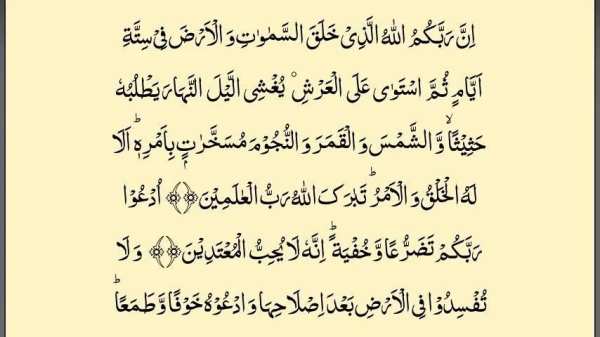 اِنَّ رَبَّكُمُ اللّٰهُ الَّذِىْ خَلَقَ السَّمٰوٰتِ وَ الْاَرْضَ فِىْ سِتَّةِ
اَيَّامٍ ثُمَّ اسْتَوٰى عَلَى الْعَرْشِ ۫ يُغْشِى الَّيْلَ النَّهَارَ يَطْلُبُهٗ
حَثِيْثًا ۙ وَّ الشَّمْسَ وَ الْقَمَرَ وَ النُّجُوْمَ مُسَخَّرٰتٍۭ بِاَمْرِهٖ ؕ اَلَا
لَهُ الْخَلْقُ وَ الْاَمْرُ ؕ تَبٰرَكَ اللّٰهُ رَبُّ الْعٰلَمِيْنَ ﴿﴾ اُدْعُوْا
رَبَّكُمْ تَضَرُّعًا وَّ خُفْيَةً ؕ اِنَّهٗ لَا يُحِبُّ الْمُعْتَدِيْنَ ﴿﴾ وَ لَا
تُفْسِدُوْا فِى الْاَرْضِ بَعْدَ اِصْلَاحِهَا وَ ادْعُوْهُ خَوْفًا وَّ طَمَعًا ؕ